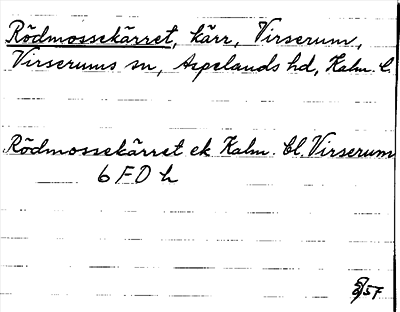 Rödmossekärret, kärr, Virserum,
Virserums sn, Aspelands hd, Kalm. l.
Rödmossekärret ek Kalm. bl. Virserum
6 F D h
57